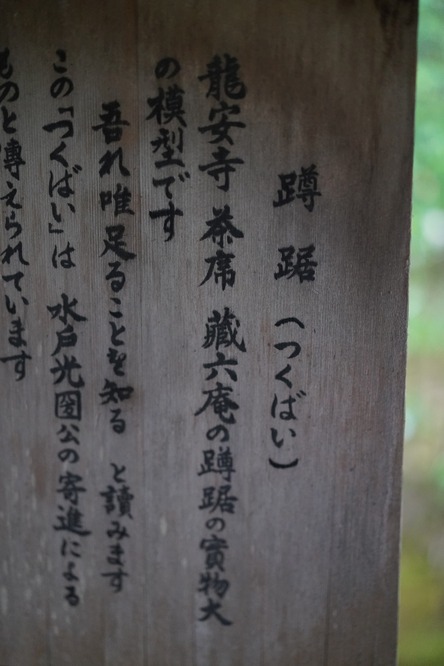 蹲踞(つくばい)
龍安寺 茶席 藏六庵の蹲踞の實物大
の模型です
吾れ唯足ることを知る と讀みます
この「つくばい」は 水戸光圀公の寄進による
ものと傳えられています